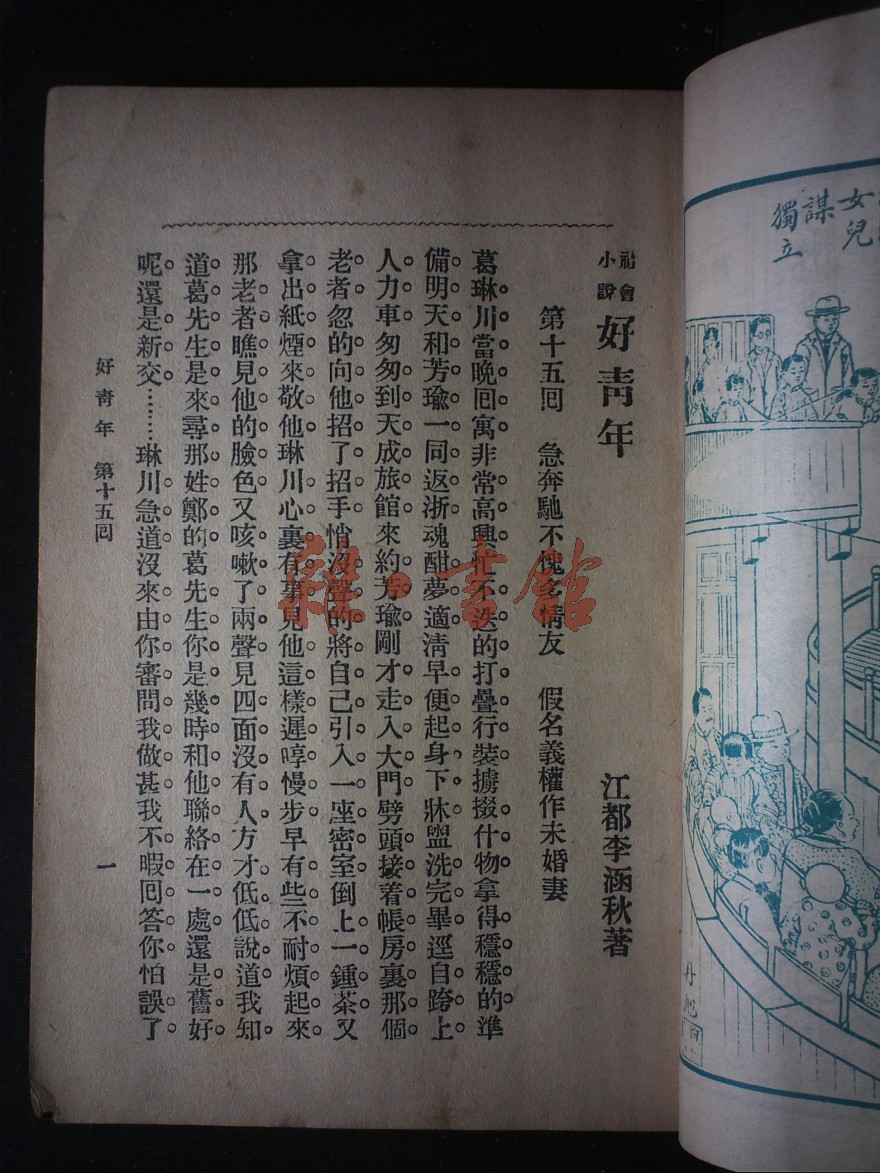 社會小說 好靑年 江都李涵秋著
第十五囘 急奔馳不愧多情友 假名義權作未婚妻
葛琳川當晚囘寓非常高興忙不迭的打疊行裝擄掇什物拿得穩穩的準
備明天和芳瑜一同返浙魂酣夢適淸早便起身下牀盥洗完畢逕自跨上
人力車匆匆到天成旅館來約芳瑜剛才走入大門劈頭接着帳房裏那個
老者忽的向他招了招手悄沒聲的將自己引入一座密室倒上一鍾茶又
拿出紙煙來敬他琳川心裏有事見他這樣遲哼慢步早有些不耐煩起來
那老者瞧見他的臉色又咳嗽了兩聲見四面沒有人方才低低說道我知
道葛先生是來尋那姓鄭的葛先生你是幾時和他聯絡在一處還是舊好
呢還是新交………琳川急道沒來由你審問我做甚我不暇囘答你怕誤了
好靑年 第十五囘 一
雜·書館
女兒
謀
獨立